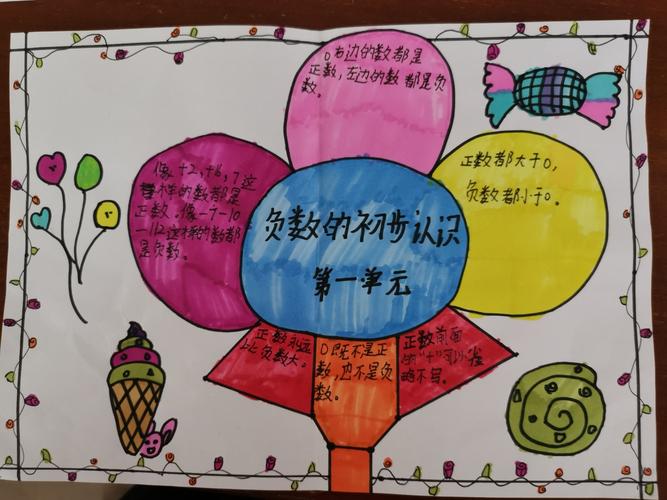 0右边的数都是
正数，左边的数都是负
数。
像+2，+6，7这
样的数都是
正数。像-7-10
-112这样的数都
是负数。
负数的初步认识
第一单元
正数都大于0，
负数都小于0。
正数永远
比负数大。
0既不是正
数，也不是负
数。
正数前面
的“+”可以省
略不写。